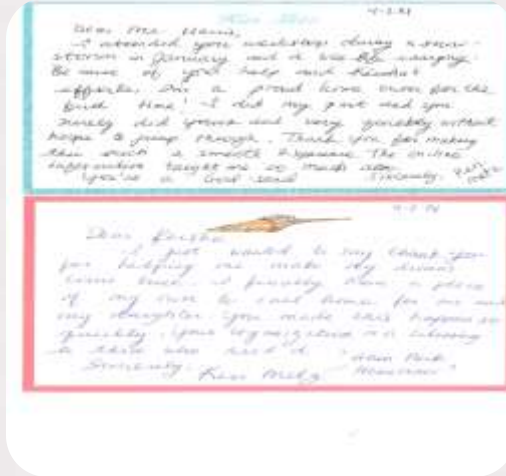 4-2-21
Dear Ms.
I attended your workshop during a snow-
storm in January and it was
Because of your help and Keisha's
efforts, I'm a proud home owner for the
first time! I did my part and you
surely did yours and very quickly without
hoops to jump through. Thank you for making
this such a smooth experience The online
information taught me so much also.
You're a God send Sincerely,
Dear Keisha
I just wanted to say thank-you
for helping me make my dreams
come true. I finally have a place
of my own to call home for me and
my daughter. You made this happen so
quickly. Your organization is a blessing
to those who need it.
Sincerely, Ken Metz